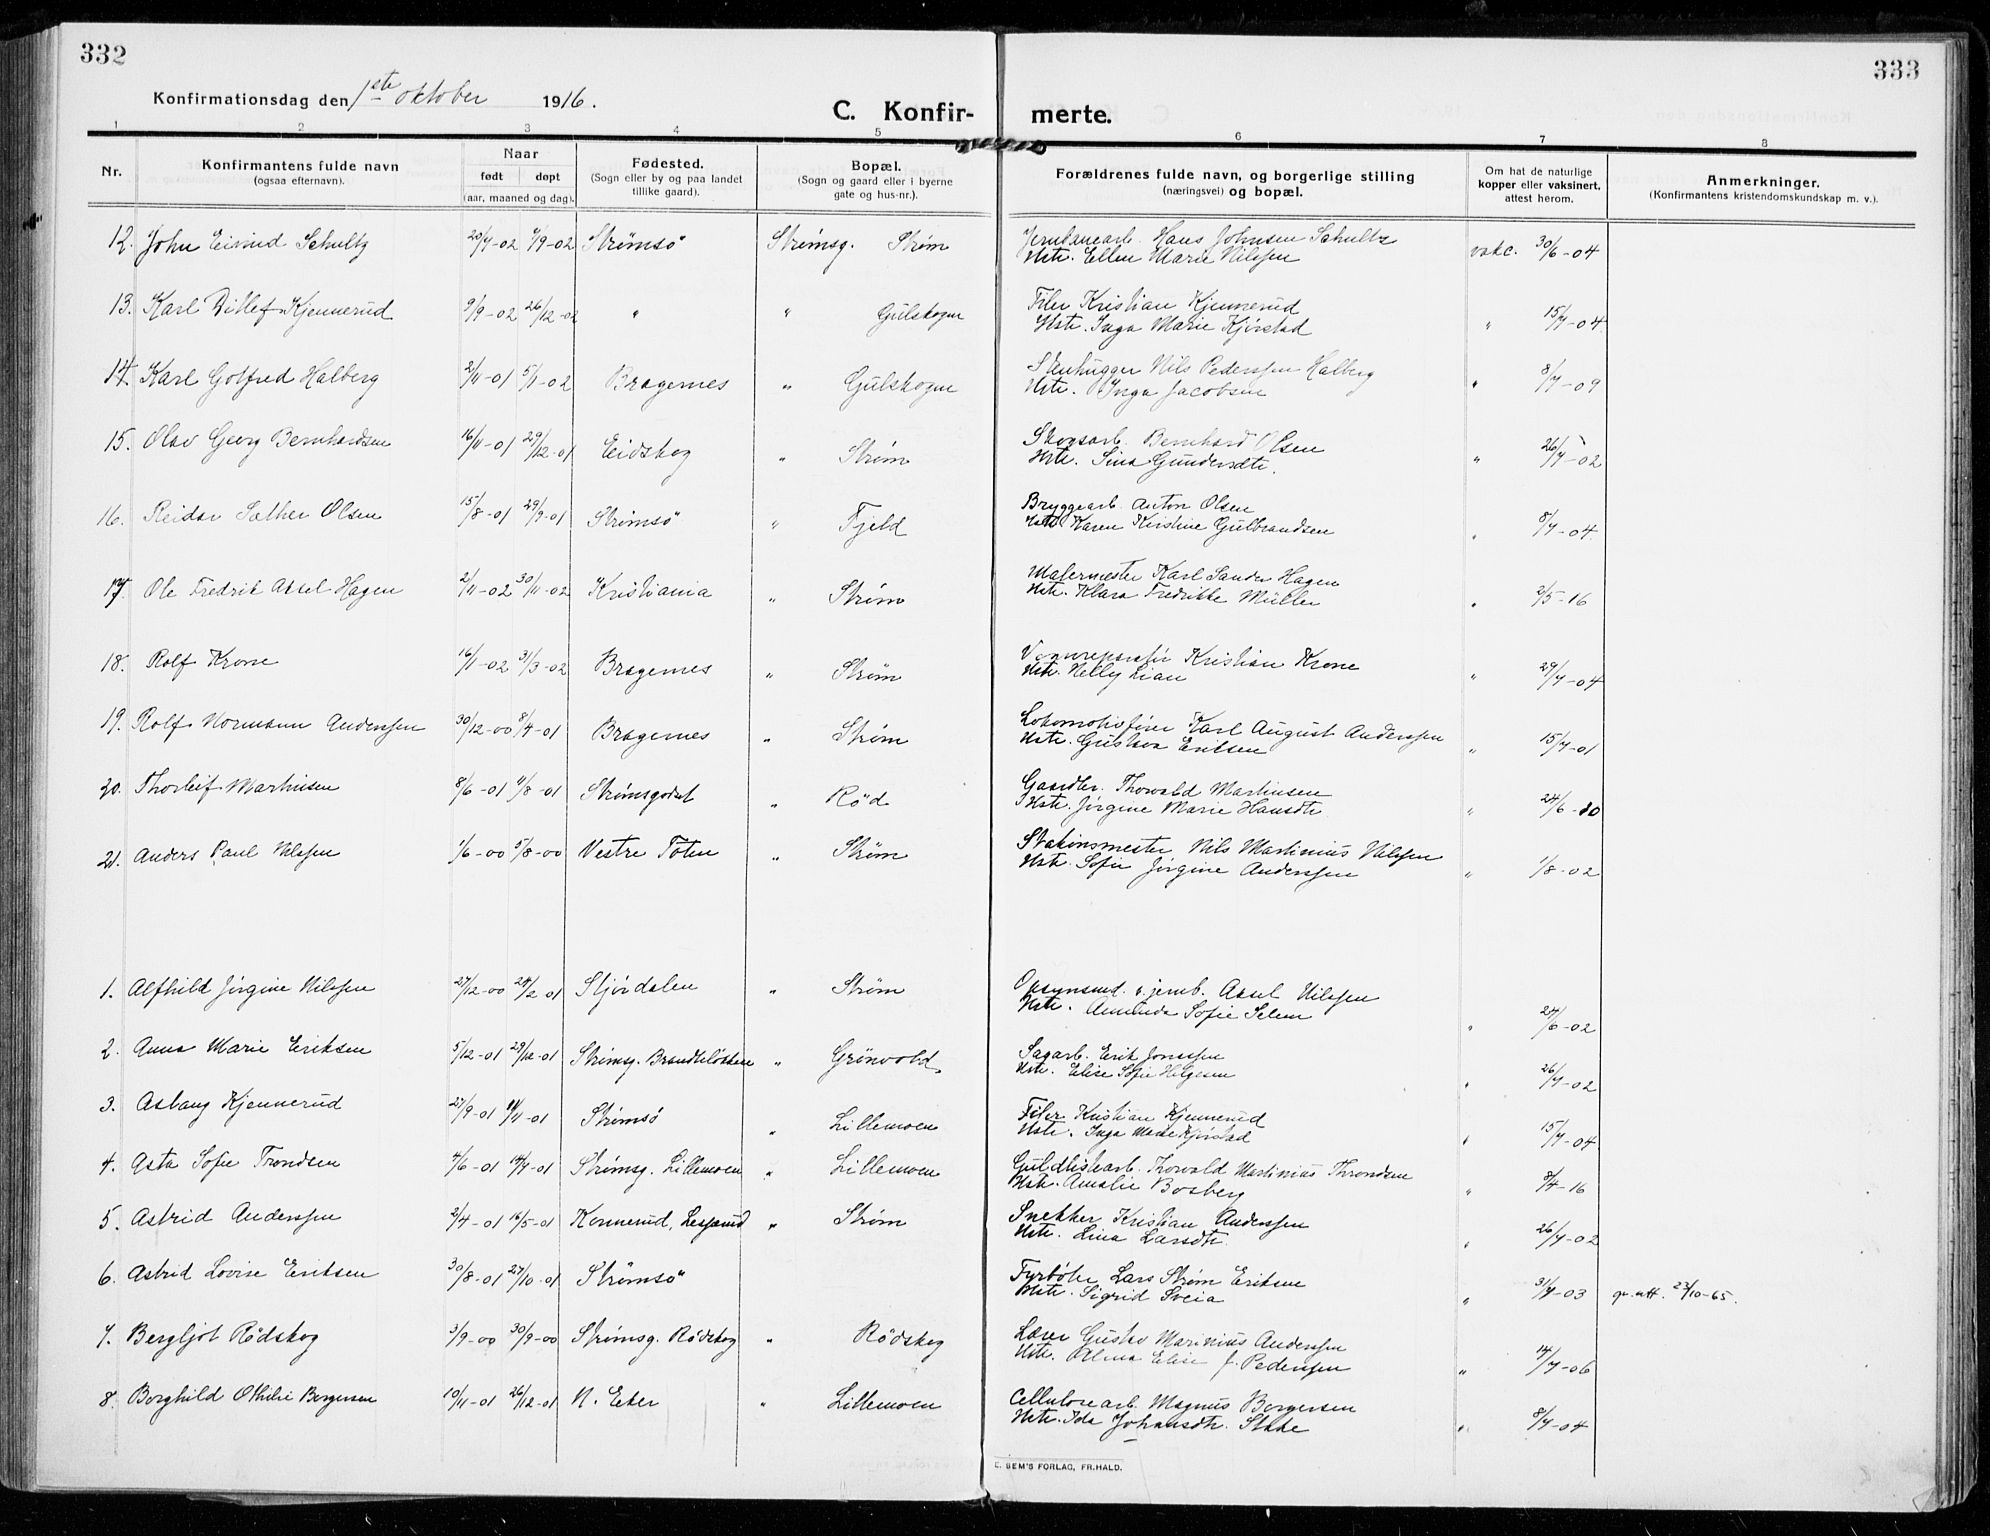 332
333
Konfirmationsdag den 1ste oktober 1916.
C. Konfir-
merte.
1 2 3 4 5 6 7 8
Nr.
Konfirmantens fulde navn
(ogsaa efternavn).
Naar
født døpt
(aar, maaned og dag).
Fødested.
(Sogn eller by og paa landet
tillike gaard).
Bopæl.
(Sogn og gaard eller i byerne
gate og hus-nr.).
Forældrenes fulde navn, og borgerlige stilling
(næringsvei) og bopæl.
Om hat de naturlige
kopper eller vaksinert,
attest herom.
Anmerkninger.
(Konfirmantens kristendomskundskap m. v.).
12. John Eivind Schultz 20/7-02 7/9-02 Strømsö Strømsg. Strøm Jernbanearb. Hans Johnsen Schultz
Hstr. Ellen Marie Nilssen vakc. 30/6-04
13. Karl Ditlef Kjennerud 9/9-02 26/12-02 " " Gulskogen Filer Kristian Kjennerud
Hstr. Inga Marie Kjørstad " 15/7-04
14. Karl Gotfred Halberg 2/11-01 5/1-02 Bragernes " Gulskogen Stenhugger Nils Pederssen Halberg
Hstr. Inga Jacobsen " 8/7-09
15. Olav Georg Bernhardsen 16/11-01 29/12-01 Eidskog " Strøm Skogsarb. Bernhard Olsen
Hstr. Sina Gundersdtr. " 26/7-02
16. Reidar Sæther Olsen 15/8-01 29/9-01 Strømsö " Fjeld Bryggearb. Anton Olsen
Hstr. Karen Kristine Gulbrandsen " 8/7-04
17. Ole Fredrik Aksel Hagen 2/11-02 30/11-02 Kristiania " Strøm Malermester Karl Sander Hagen
Hstr. Klara Fredrikke Müller " 2/5-16
18. Rolf Krone 16/1-02 31/3-02 Bragernes " Strøm Kristian Krone
Hstr. Nelly Lian " 29/7-04
19. Rolf Normann Anderssen 30/12-00 8/4-01 Bragernes " Strøm Lokomotivfører Karl August Anderssen
Hstr. Gustava Eriksen " 15/7-01
20. Thorleif Martinsen 8/6-01 11/8-01 Strømsgodset " Röd Gaardbr. Thorvald Martinsen
Hstr. Jørgine Marie Hansdtr. " 24/6-10
21. Anders Paul Nilssen 1/6-00 5/8-00 Vestre Toten " Strøm Stationsmester Nils Martinius Nilssen
Hstr. Sofie Jørgine Anderssen " 1/8-02
1. Alfhild Jørgine Nilssen 27/12-00 24/2 01 Stjørdalen " Strøm Opsynsmd. v. jernb. Axsel Nilssen
Hstr. Amanda Sofie Selem " 24/6-02
2. Anna Marie Eriksen 5/12-01 29/12-01 Strømsg. " Grönvold Sagarb. Erik Jonassen
Hstr. Elise Sofie Helgesen " 26/7-02
3. Aslaug Kjennerud 27/9-01 11/11-01 Strømsö " Lillemoen Filer Kristian Kjennerud
Hstr. Inga Marie Kjørstad " 15/7-04
4. Asta Sofie Trondsen 4/6-01 14/7-01 Strømsg. Lillemoen " Lillemoen Guldlistearb. Thorvald Martinius Throndsen
Hstr. Amalie Bosberg " 8/4-16
5. Astrid Anderssen 2/4-01 16/5-01 Konnerud, " Strøm Snekker Kristian Anderssen
Hstr. Lina Larsdtr. " 26/7-02
6. Astrid Lovise Eriksen 30/8-01 27/10-01 Strømsö Fyrböter Lars Strøm Eriksen
Hstr. Sigrid Sveia " 31/7-03 gr. att. 23/10-65.
7. Bergljot Rödskog 3/9-00 30/9-00 Strømsg. Rödskog " Rödskog Lærer Gustav Marinius Anderssen
Hstr. Alma Elise f. Pederssen " 14/7-06
8. Borghild Othilie Borgersen 10/11-01 26/12-01 N. Eker " Lillemoen Cellulosearb. Magnus Borgersen
Hstr. Ida Johansdtr. Stake " 8/7-04
E. SEM'S FORLAG, FR.HALD.